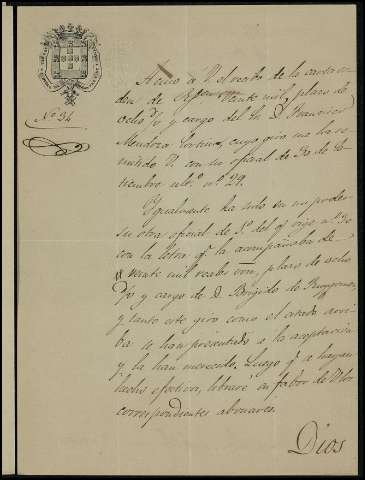 Nº 34
Acuso á V. el recibo de la cantidad
de veinte mil, plazo de
ocho d/v y cargo del Sr. D. Francisco
Mendoza Cortina, cuyo giro me ha re-
mitido V. con su oficial de 30 de Se-
tiembre ulto. nº 29.
Igualmente ha sido en mi poder
su otra oficial de 1º del q. rije nº 30
con la letra q. la acompañaba de
veinte mil reales von, plazo de ocho
d/v y cargo de D. Brigido de
y tanto este giro como el citado arri-
ba se han presentado a la aceptacion
y la han merecido. Luego q. se hayan
hecho efectivos, libraré en fabor de V. los
correspondientes abonares.
Dios